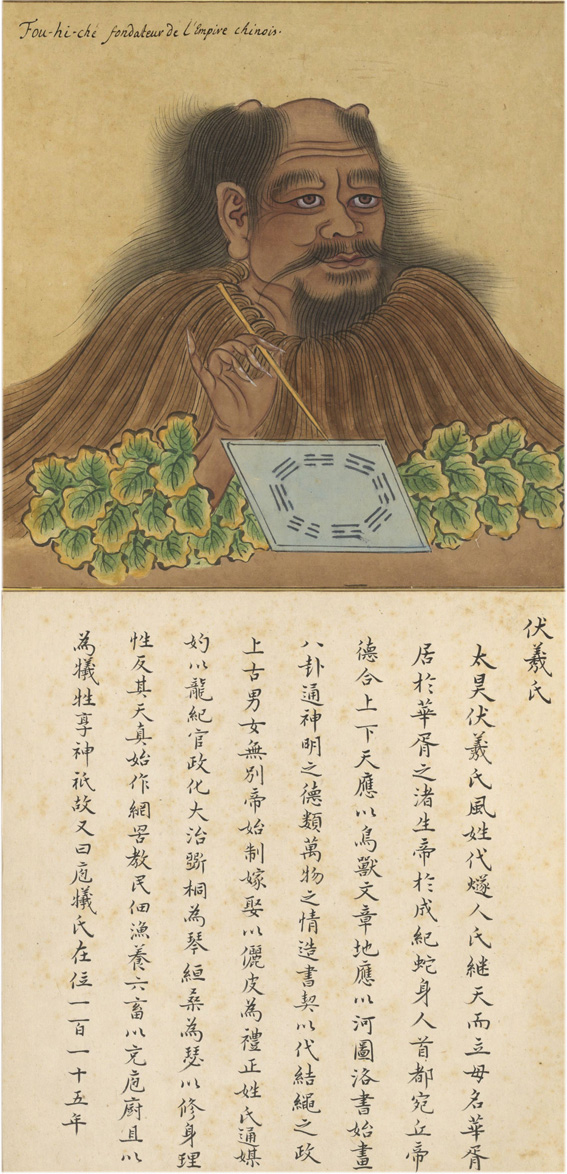 Fou-hi-ché fondateur de l'Empire chinois.
伏羲氏
太昊伏羲氏風姓代燧人氏継天而立母名華胥
居於華胥之渚生帝於成紀蛇身人首都宛丘帝
德合上下天應以鳥獸文章地應以河圖洛書始畫
八卦通神明之德類萬物之情造書契以代結繩之政
上古男女無別帝始制嫁娶以儷皮為禮正姓氏通媒
妁以龍紀官政化大治斲桐為琴絙桑為瑟以修身理
性反其天真始作網罟教民佃漁養六畜以充庖廚且以
為犧牲享神祇故又曰庖犧氏在位一百一十五年